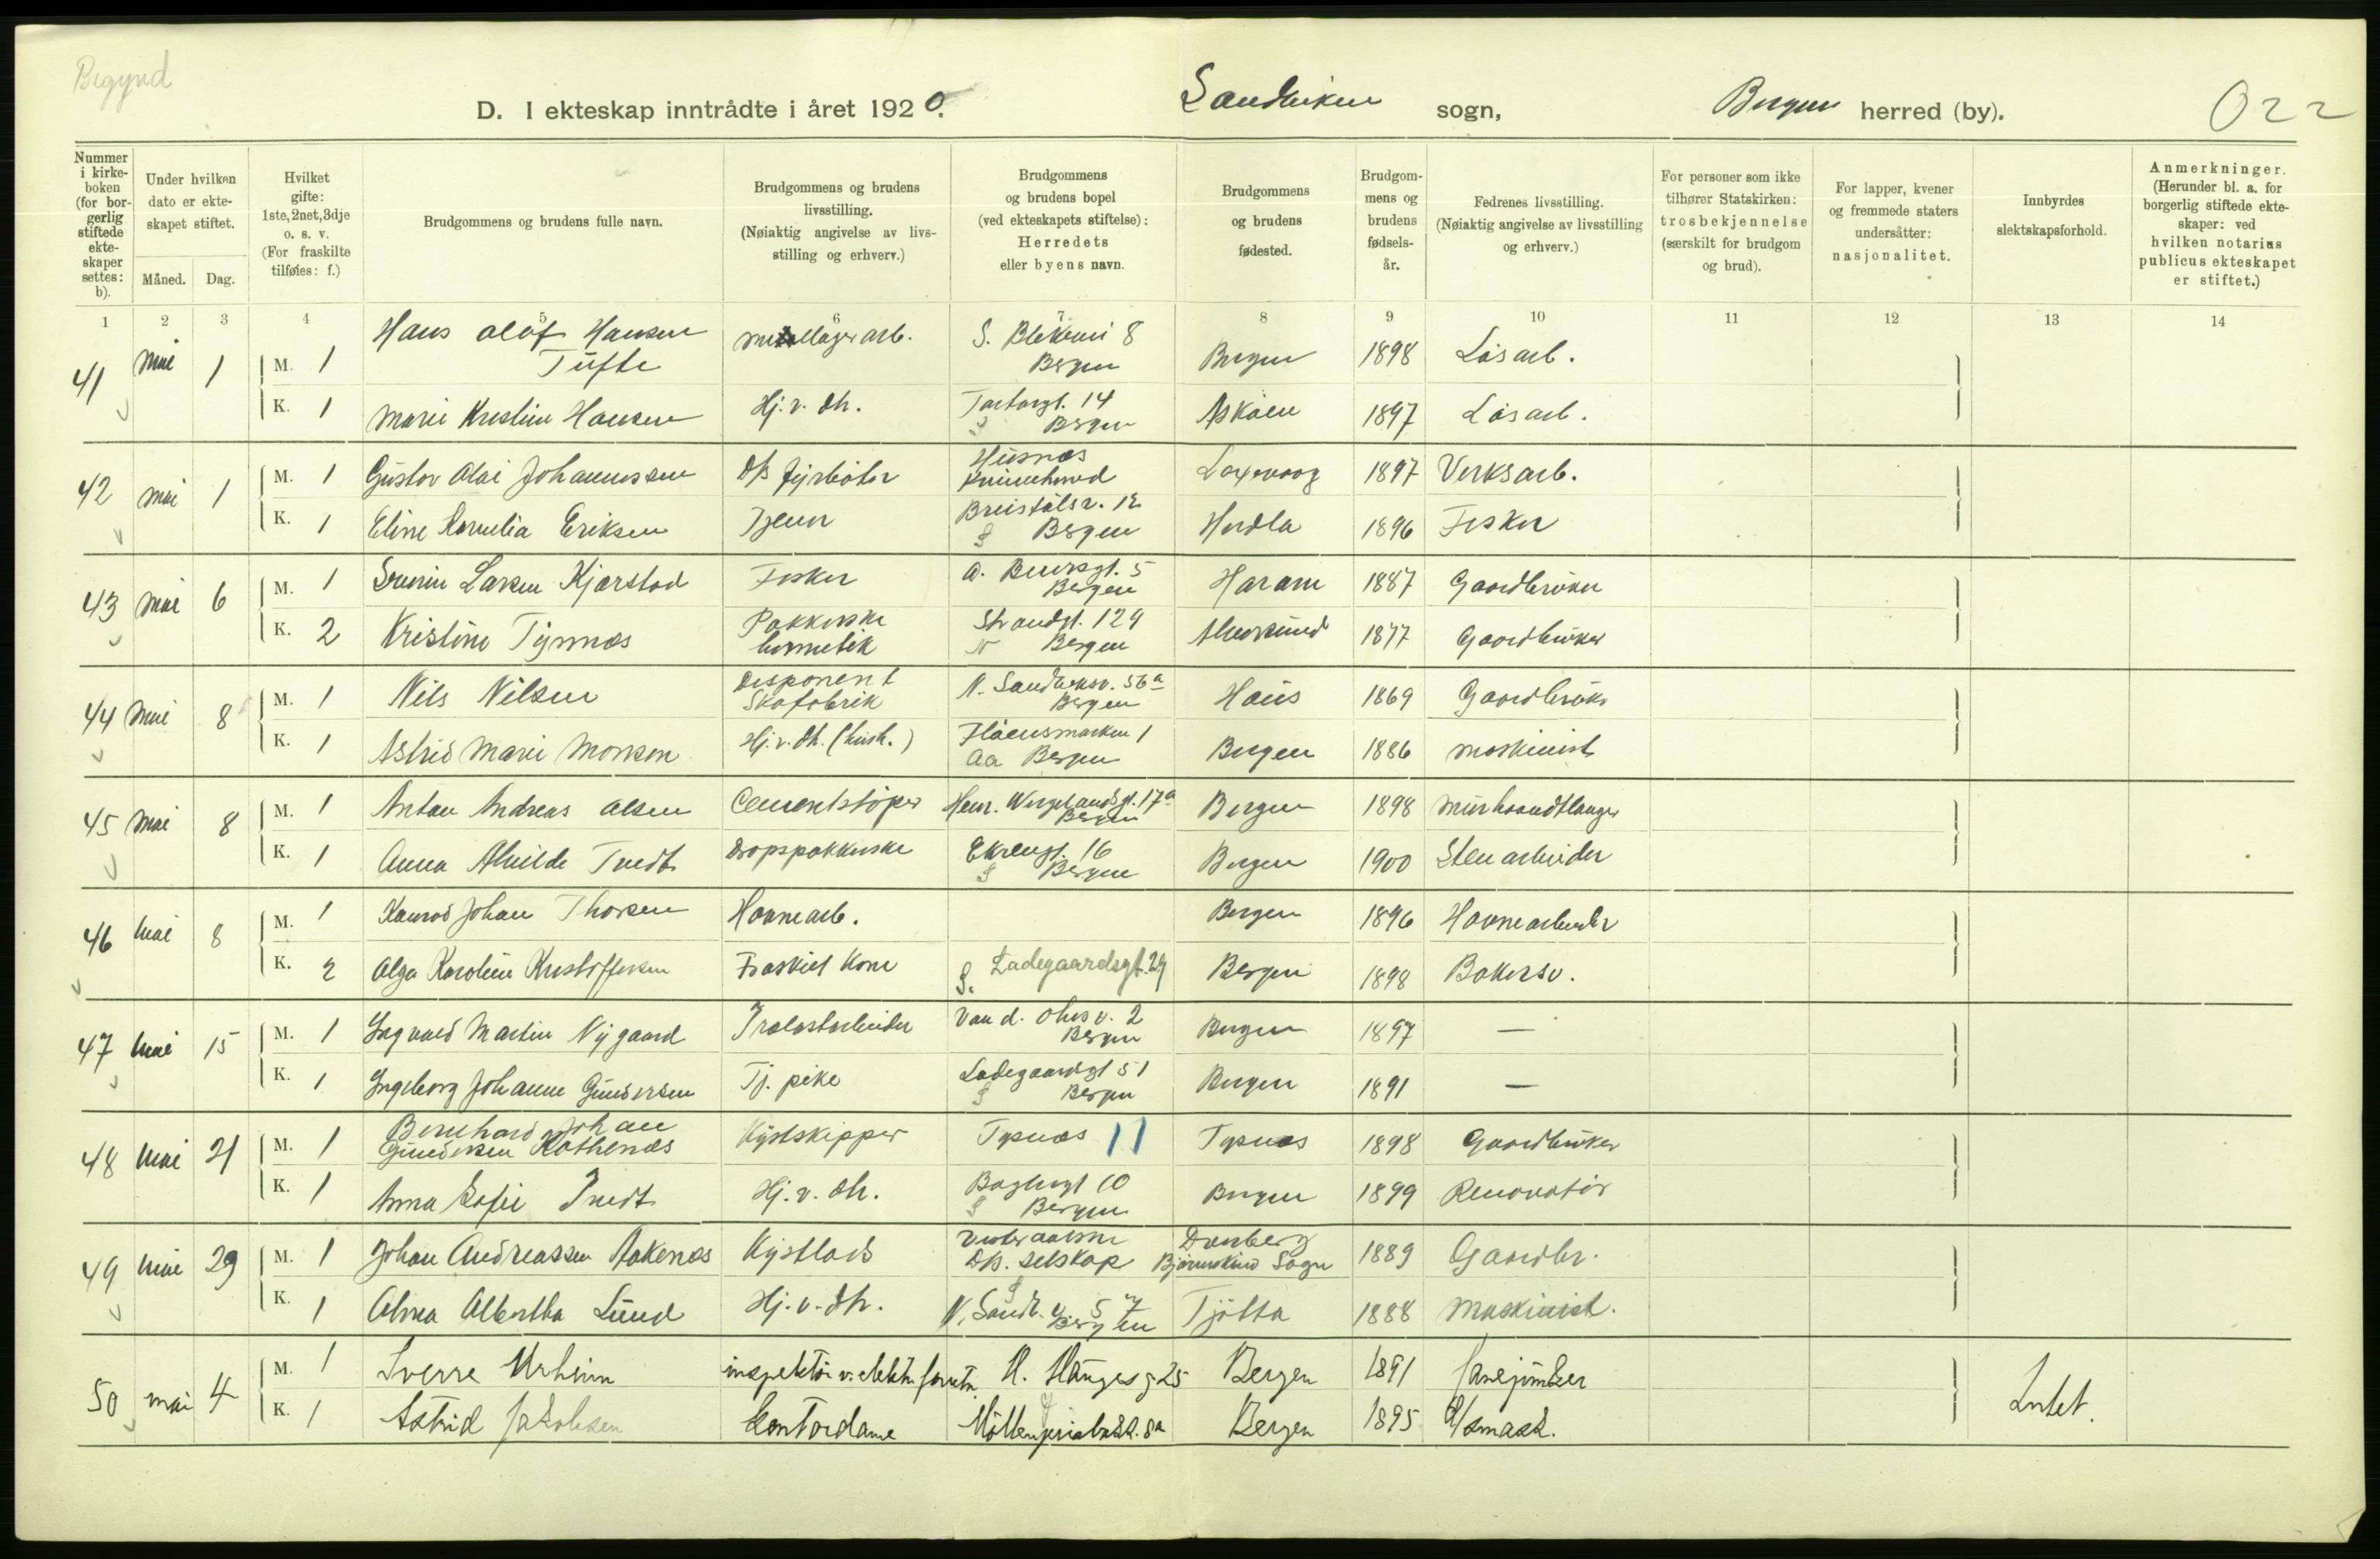 Begynd
D. I ekteskap inntrådte i året 1920. Sandviken sogn, Bergen herred (by). 022
Nummer i kirkeboken (for borgerlig stiftede ekteskaper settes: b).
Under hvilken dato er ekteskapet stiftet.
Måned. Dag.
Hvilket gifte: 1ste, 2net, 3dje o. s. v. (For fraskilte tilføies: f.)
Brudgommens og brudens fulle navn.
Brudgommens og brudens livsstilling. (Nøiaktig angivelse av livsstilling og erhverv.)
Brudgommens og brudens bopel (ved ekteskapets stiftelse): Herredets eller byens navn.
Brudgommens og brudens fødested.
Brudgommens og brudens fødselsår.
Fedrenes livsstilling. (Nøiaktig angivelse av livsstilling og erhverv.)
For personer som ikke tilhører Statskirken: trosbekjennelse (særskilt for brudgom og brud).
For lapper, kvener og fremmede staters undersåtter: nasjonalitet.
Innbyrdes slektskapsforhold.
Anmerkninger. (Herunder bl. a. for borgerlig stiftede ekteskaper: ved hvilken notarius publicus ekteskapet er stiftet.)
1 2 3 4 5 6 7 8 9 10 11 12 13 14
41 mai 1 M. 1 Hans Olaf Hansen Tufte S. Blekevei 8 Bergen Bergen 1898 Løsarb.
K. 1 Marie Kristine Hansen Hj. v. dh. Tartargt. 14 S Bergen Askøen 1897 Løsarb.
42 mai 1 M. 1 Gustav Olai Johannessen D/s fyrbøter Husnes Kvinneherred Laxevaag 1897 Verksarb.
K. 1 Eline Kornelia Eriksen Tjener Breistølsv. 12 S Bergen Herdla 1896 Fisker
43 mai 6 M. 1 Severin Larsen Kjerstad Fisker A. Beversgt. 5 Bergen Haram 1887 Gaardbruker
K. 2 Kristine Tysnes Pakkerske hermetik Strandgt. 129 N Bergen Alversund 1877 Gaardbruker
44 mai 8 M. 1 Nils Nilsen Disponent Skofabrik N. Sandviksv. 56a Bergen Haus 1869 Gaardbruk.
K. 1 Astrid Marie Monsen Hj. v. dh. (hush.) Fløensmarken 1 Aa Bergen Bergen 1886 Maskinist
45 mai 8 M. 1 Anton Andreas Olsen Cementstøper Henr. Wergelandsgt. 17a Bergen Bergen 1898 Murhaandtlanger
K. 1 Anna Alvilde Tvedt Dropspakkerske Ekrengt. 16 S Bergen Bergen 1900 Stenarbeider
46 mai 8 M. 1 Konrad Johan Thorsen Havnearb. Bergen 1896 Havnearbeider
K. 2 Olga Karoline Kristoffersen Fraskilt Kone S. Ladegaardsgt. 29 Bergen 1898 Bakersv.
47 mai 15 M. 1 Ingvald Martin Nygaard Tralastarbeider Van d. Ohesv. 2 Bergen Bergen 1897 —
K. 1 Ingeborg Johanne Gundersen Tj. pike Ladegaardsgt 51 S Bergen Bergen 1891 —
48 mai 21 M. 1 Bernhard Johan Gundersen Kathenes Kystskipper Tysnes 11 Tysnes 1898 Gaardbruker
K. 1 Anna Sofie Tvedt Hj. v. dh. Baglergt 10 S Bergen Bergen 1899 Renovatør
49 mai 29 M. 1 Johan Andreassen Aakenes Kystlods Vesteraalens Ds. selskap Bjørnskind Sogn 1889 Gaardbr.
K. 1 Alma Albertha Lund Hj. v. dh. S N. Sandv. v. 57 Bergen Tjøtta 1888 Maskinist.
50 mai 4 M. 1 Sverre Urheim inspektør v. elektr. forretn. H. Haugesg 25 Bergen 1891
K. 1 Astrid Jakobsen Kontordame Bergen 1895 1/smask.
Intet.